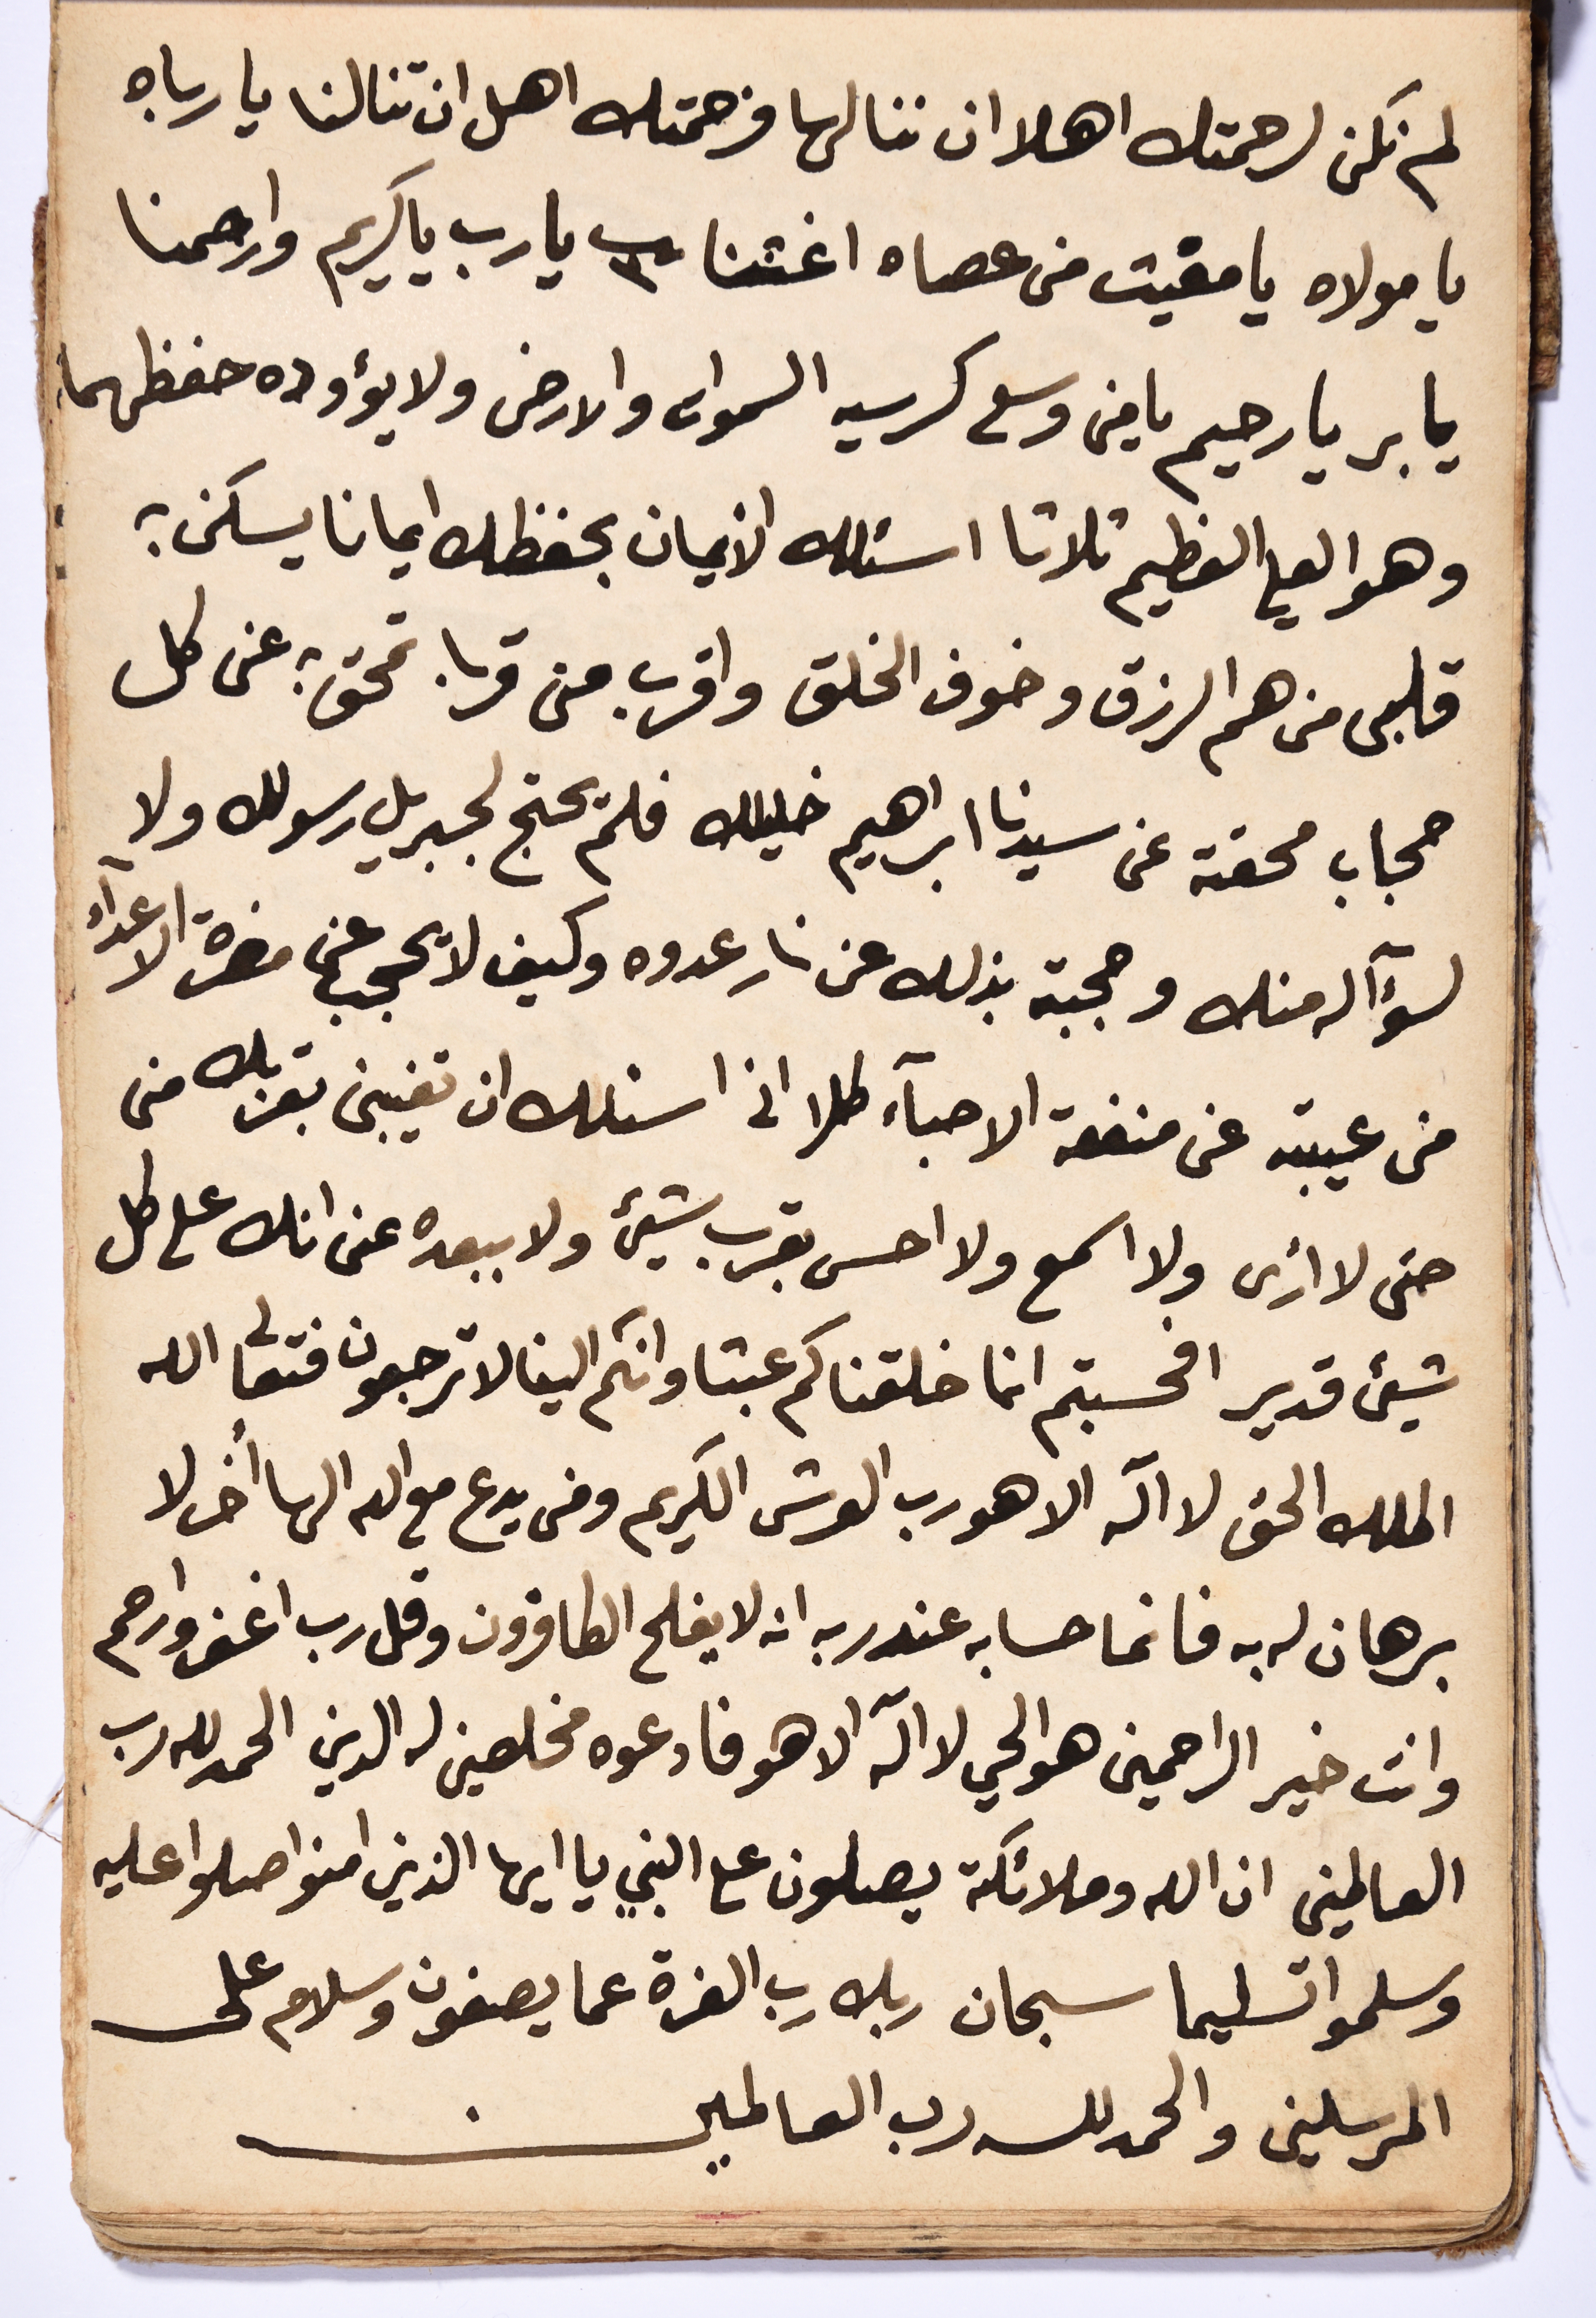 لم نكن لرحمتك اهلا ان ننالها فرحمتك اهل ان تنالنا يا رباه
يا مولاه يا مغيث من عصاه اغثنا ٣ يا رب يا كريم وارحمنا
يا بر يا رحيم يا من وسع كرسيه السموات والارض ولا يؤوده حفظهما
وهو العلي العظيم ثلاثا اسئلك الايمان بحفظك ايمانا يسكن به
قلبي من هم الرزق وخوف الخلق واقرب مني قربا تمحق به عنى كل
حجاب محقته عن سيدنا ابراهيم خليلك فلم يحتج لجبريل رسولك ولا
لسؤآله منك وحجبته بذلك عن نار عدوه وكيف لا يحجب عن مضرة الاعدآء
من غيبته عن منفعة الاحبآء كلا انى اسئلك ان تغيبنى بقربك منى
حتى لا ارى ولا اسمع ولا احس بقرب شيئ ولا ببعده عنى انك على كل
شيئ قدير افحسبتم انما خلقناكم عبثا وانكم الينا لا ترجعون فتعالى الله
الملك الحق لا اله الا هو رب العرش الكريم ومن يدع مع الله الها أخر لا
برهان له به فانما حسابه عند ربه انه لا يفلح الكافرون وقل رب اغفر وارحم
وانت خير الراحمين هو الحي لا اله الا هو فادعوه مخلصين له الدين الحمد لله رب
العالمين ان الله وملائكته يصلون على النبي يا ايها الذين امنوا صلوا عليه
وسلموا تسليما سبحان ربك رب العزة عما يصفون وسلام على
المرسلين والحمد لله رب العالمين